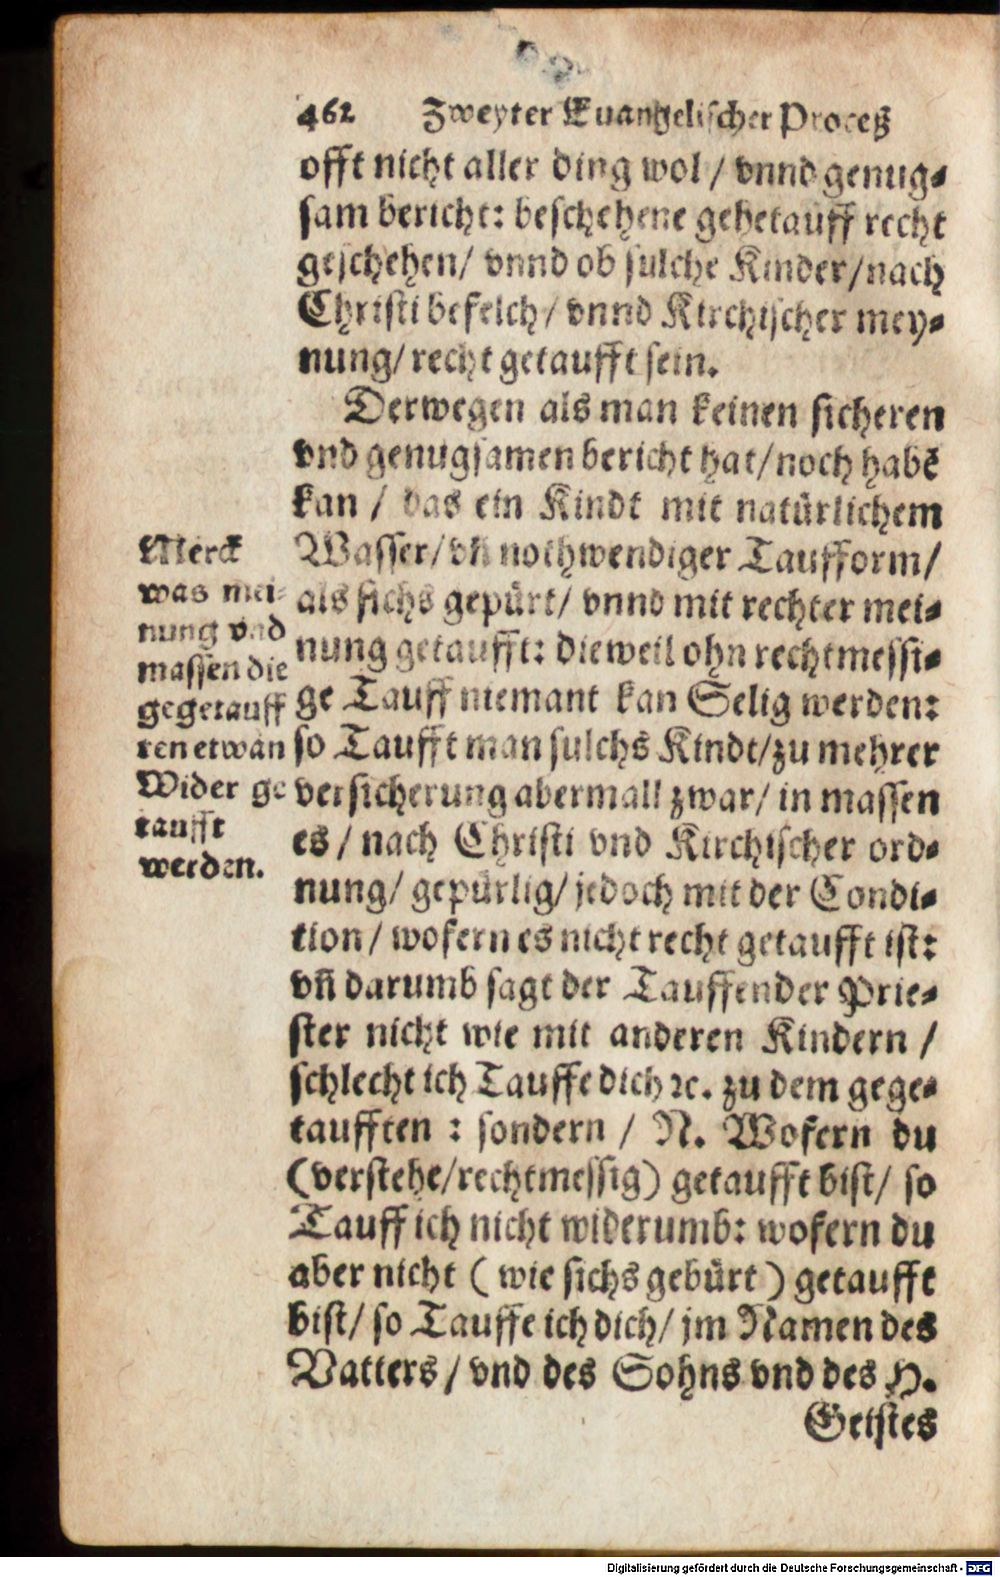 462 Zweyter Euangelischer Proceß
offt nicht aller ding wol / vnnd genug⸗
sam bericht: beschehene gehetauff recht
geschehen/ vnnd ob sulche Kinder/nach
Christi befelch/ vnnd Kirchischer mey⸗
nung/ recht getaufft sein.
Derwegen als man keinen sicheren
vnd genugsamen bericht hat/noch habē
kan / das ein Kindt mit natürlichem
Wasser/ vñ nothwendiger Taufform/
als sichs gepürt/ vnnd mit rechter mei⸗
nung getaufft: dieweil ohn rechtmessi⸗
ge Tauff niemant kan Selig werden:
so Taufft man sulchs Kindt/zu mehrer
versicherung abermall zwar/ in massen
es / nach Christi vnd Kirchischer ord⸗
nung/ gepürlig/ jedoch mit der Condi⸗
tion / wofern es nicht recht getaufft ist:
vñ darumb sagt der Tauffender Prie⸗
ster nicht wie mit anderen Kindern /
schlecht ich Tauffe dich ꝛc. zu dem gege⸗
taufften : sondern / N. Wofern du
(verstehe/rechtmessig) getaufft bist/ so
Tauff ich nicht widerumb: wofern du
aber nicht ( wie sichs gebürt ) getaufft
bist/ so Tauffe ich dich/ jm Namen des
Vatters / vnd des Sohns vnd des H.
Geistes
Merck
was mei⸗
nung vnd
massen die
gegetauff
ten etwan
Wider ge
taufft
werden.
Digitalisierung gefördert durch die Deutsche Forschungsgemeinschaft - DFG